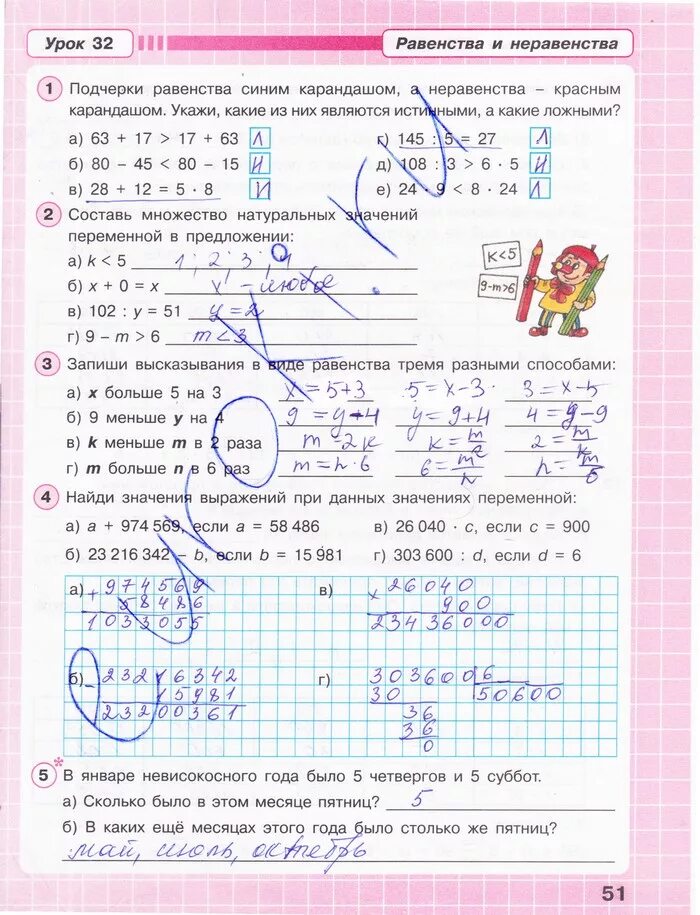 Урок 32
Равенства и неравенства
1 Подчерки равенства синим карандашом, а неравенства – красным
карандашом. Укажи, какие из них являются истинными, а какие ложными?
а) 63 + 17 > 17 + 63 Л г) 145 : 5 = 27 Л
б) 80 – 45 < 80 – 15 И д) 108 : 3 > 6 · 5 И
в) 28 + 12 = 5 · 8 И е) 24 · 9 < 8 · 24 Л
2 Составь множество натуральных значений
переменной в предложении:
а) k < 5 1; 2; 3; 4
б) x + 0 = x x – любое
в) 102 : y = 51 y = 2
г) 9 – m > 6 m < 3
K<5
9-m>6
3 Запиши высказывания в виде равенства тремя разными способами:
а) x больше 5 на 3 x = 5+3 5 = x-3 3 = x-5
б) 9 меньше y на 4 9 = y-4 y = 9+4 4 = y-9
в) k меньше m в 2 раза m = 2k k = m/2 2 = m/k
г) m больше n в 6 раз m = n·6 6 = m/n n = m/6
4 Найди значения выражений при данных значениях переменной:
а) a + 974 569, если a = 58 486 в) 26 040 · c, если c = 900
б) 23 216 342 – b, если b = 15 981 г) 303 600 : d, если d = 6
а) + 974569 в) × 26040
58486 900
1033055 23436000
б) – 23216342 г) 303600 6
15981 30 50600
23200361 36
36
0
5* В январе невисокосного года было 5 четвергов и 5 суббот.
а) Сколько было в этом месяце пятниц? 5
б) В каких ещё месяцах этого года было столько же пятниц?
май, июль, октябрь
51